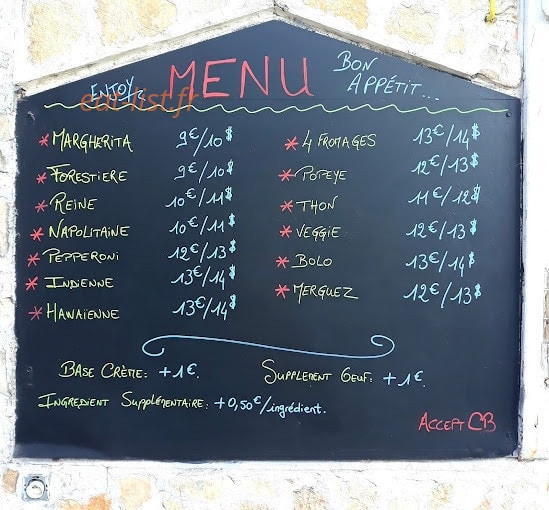 ENJOY
MENU
BON
APPÉTIT...
eat-list.fr
* MARGHERITA 9€/10$
* FORESTIERE 9€/10$
* REINE 10€/11$
* NAPOLITAINE 10€/11$
* PEPPERONI 12€/13$
* INDIENNE 13€/14$
* HAWAIENNE 13€/14$
* 4 FROMAGES 13€/14$
* POPEYE 12€/13$
* THON 11€/12$
* VEGGIE 12€/13$
* BOLO 13€/14$
* MERGUEZ 12€/13$
BASE CRÈME: +1€.
SUPPLEMENT OEUF: +1€.
INGREDIENT SUPPLÉMENTAIRE: +0,50€/ingrédient.
ACCEPT CB